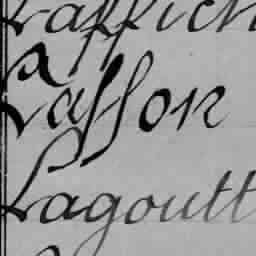 Laffich
Laffon
Lagoutt